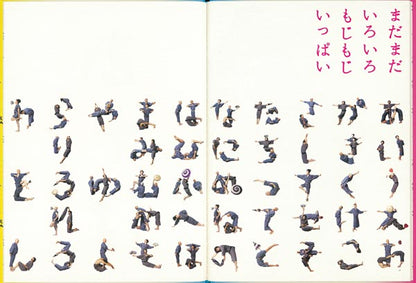 まだまだ
いろいろ
もじもじ
いっぱい
あいうえお
かきくけこ
さしすせそ
たちつてと
なにぬねの
はひふへほ
まみむめも
やゆよ
らりるれろ
わをん